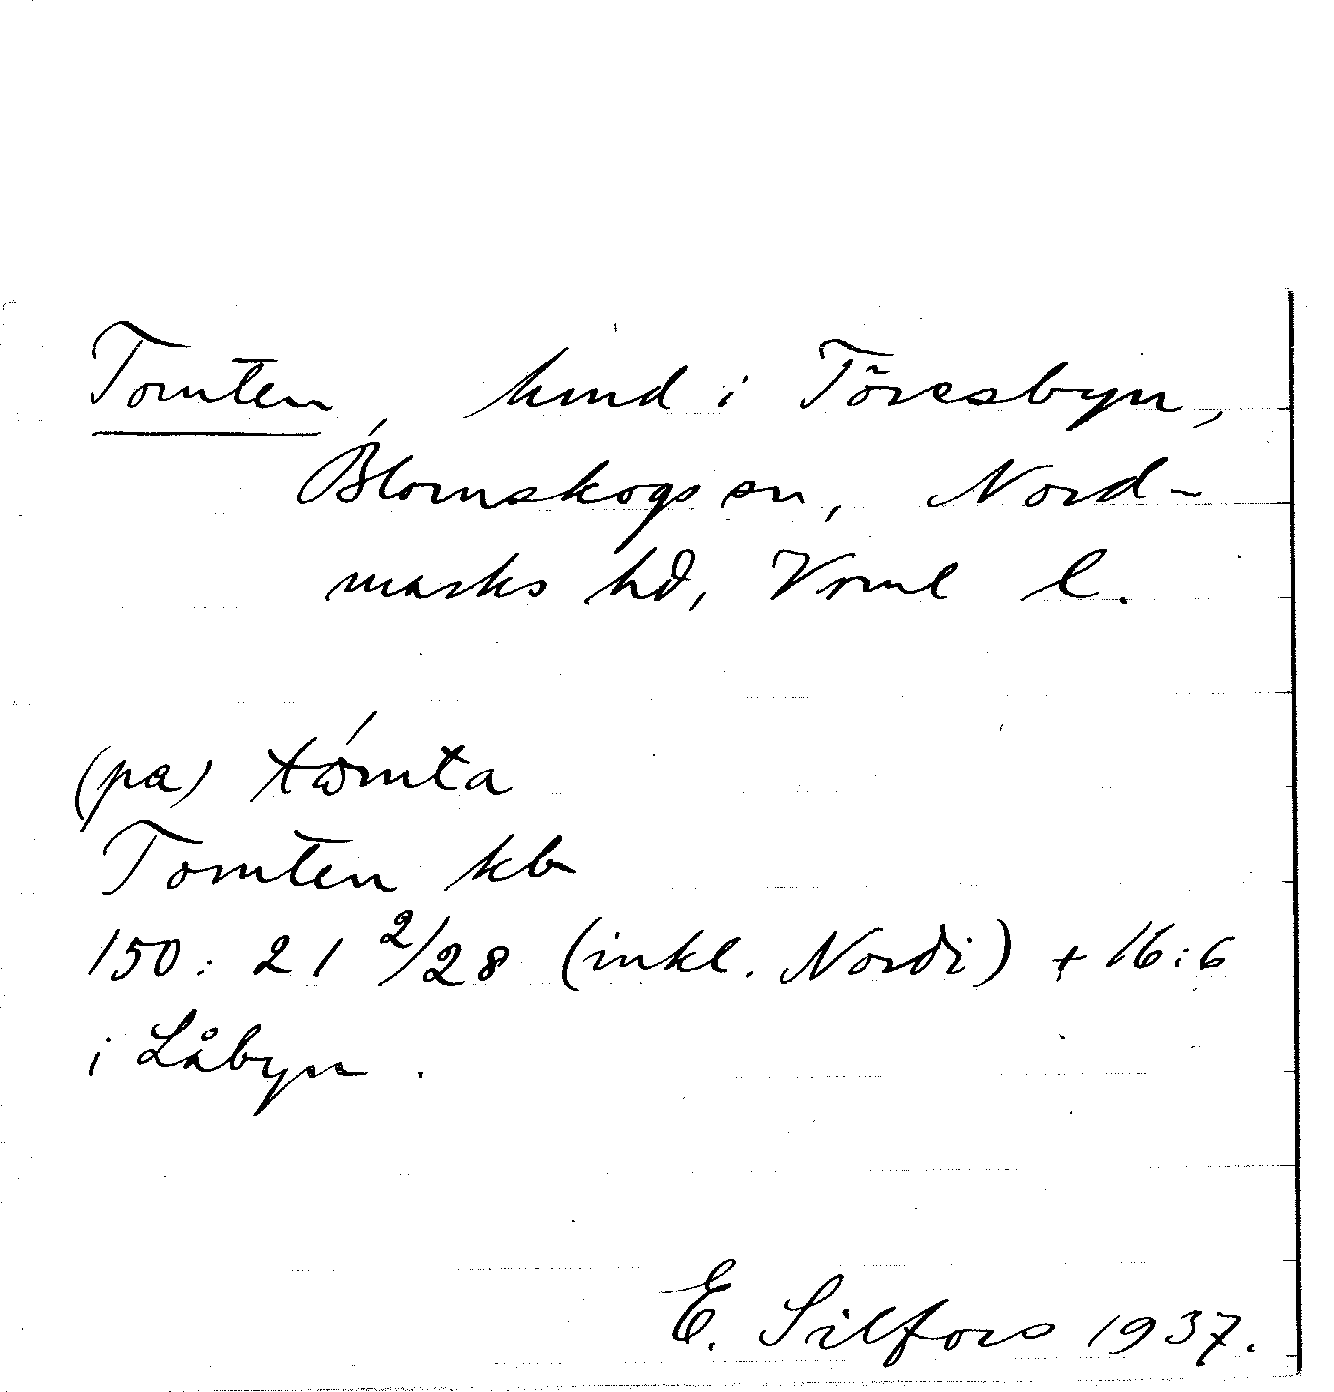 Tomten, hmd i Töresbyn,
Blomskogs sn, Nord-
marks hd, Vrml l.
(pa) tómta
Tomten kb
150:21 2/28 (inkl. Nordi) + 16:6
i Låbyn.
E. Silfors 1937.